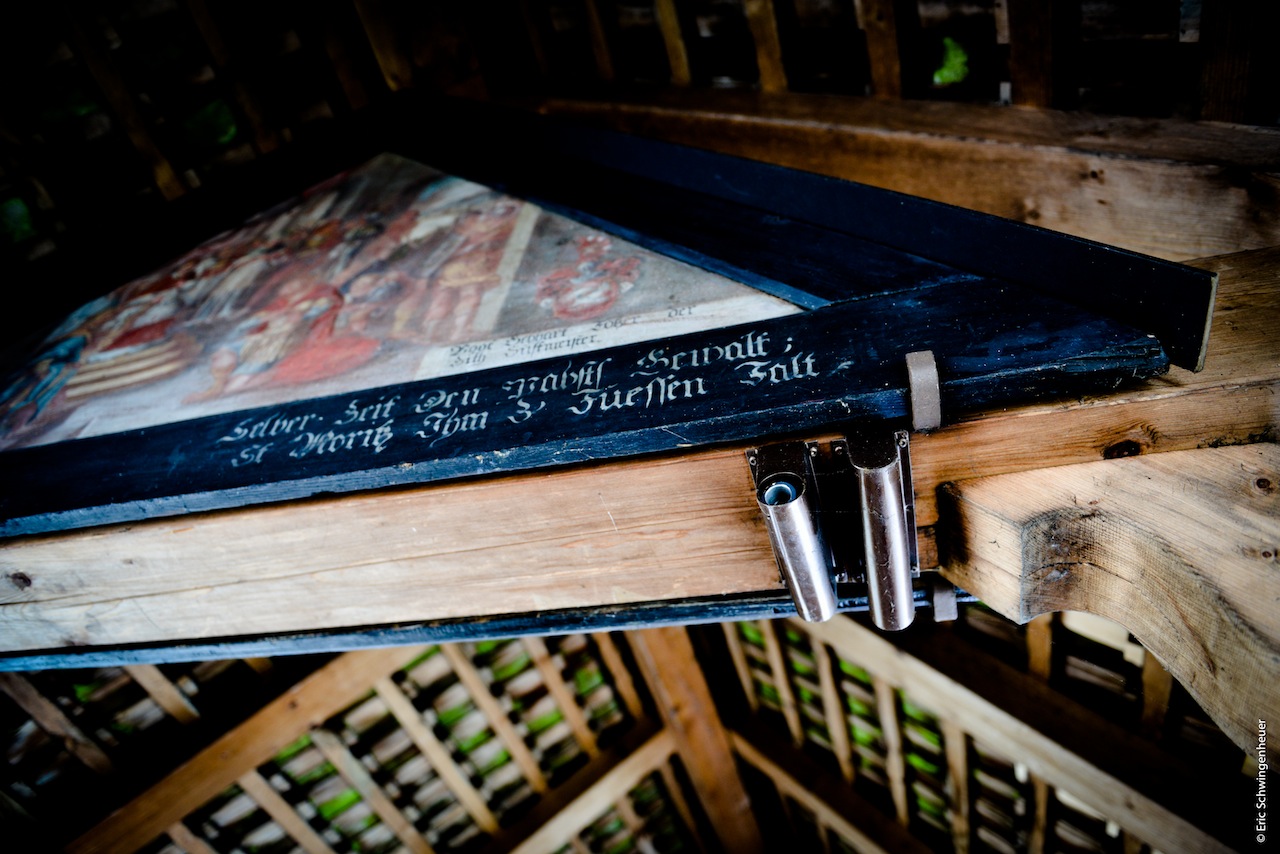 Vogt der
Selber. Seit Den Pabsts Gewalt ;
St Moritz Ihm Z' Füessen Falt .
© Eric Schwingenheuer